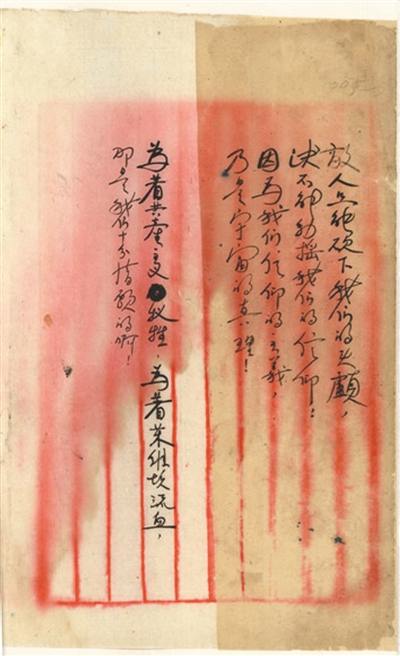 敌人只能砍下我们的头颅，
决不能动摇我们的信仰！
因为我们信仰的主义，
乃是宇宙的真理！
為着共產主义牺牲，為着苏维埃流血，
那是我们十分情愿的啊！